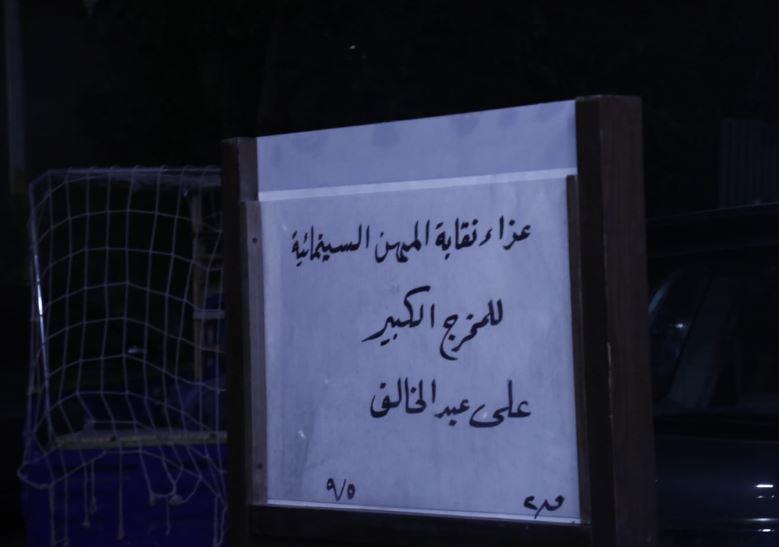 عزاء نقابة المهن السينمائية
للمخرج الكبير
على عبد الخالق
٩/٥